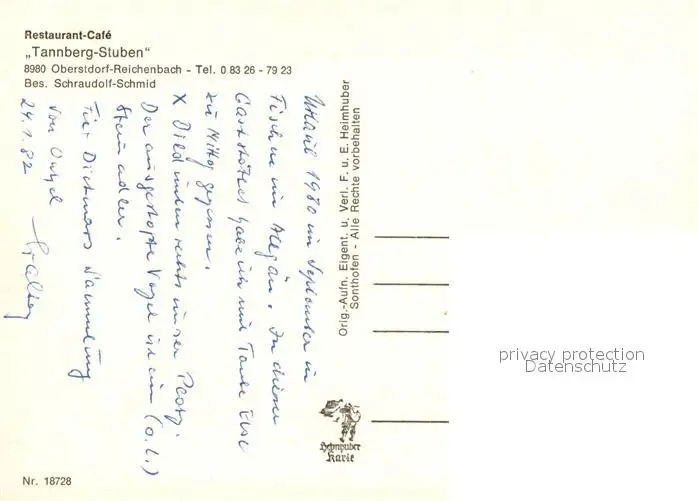 Restaurant-Café
„Tannberg-Stuben“
8980 Oberstdorf-Reichenbach - Tel. 0 83 26 - 79 23
Bes. Schraudolf-Schmid
Urlaub 1980 im September in
Fischen im Allgäu. In dieser
Gaststätte habe ich mit Tante Else
zu Mittag gegessen.
X Bild unten rechts unser Platz.
Der ausgestopfte Vogel ist ein (o.l.)
Steinadler.
Für Dietmars Sammlung
von Onkel
24.1.82
Orig.-Aufn. Eigent. u. Verl. F. u. E. Heimhuber
Sonthofen - Alle Rechte vorbehalten
privacy protection
Datenschutz
Heimhuber
Karte
Nr. 18728